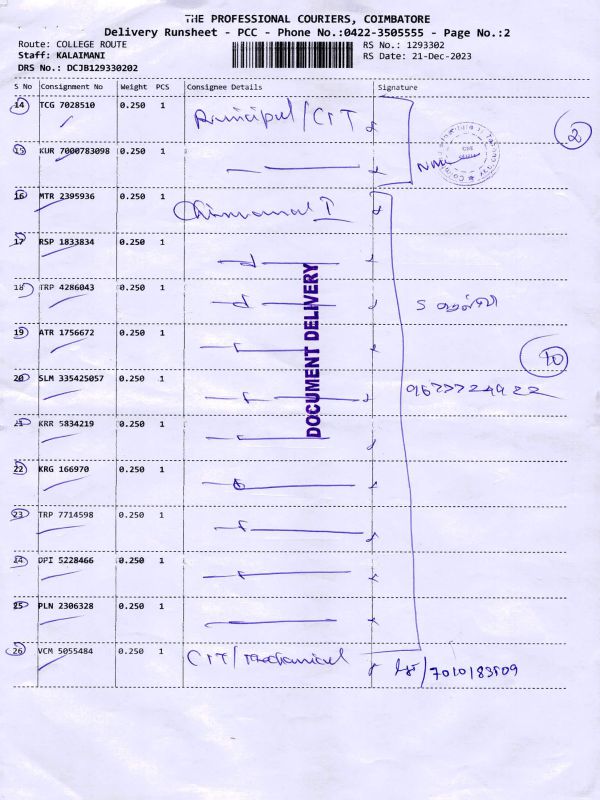 THE PROFESSIONAL COURIERS, COIMBATORE
Delivery Runsheet - PCC - Phone No.:0422-3505555 - Page No.:2
Route: COLLEGE ROUTE
Staff: KALAIMANI
DRS No.: DCJB129330202
RS No.: 1293302
RS Date: 21-Dec-2023
S No Consignment No Weight PCS Consignee Details Signature
14 TCG 7028510 0.250 1 Principal/CIT
2
15 KUR 7000783098 0.250 1
16 MTR 2395936 0.250 1
17 RSP 1833834 0.250 1
18 TRP 4286043 0.250 1
19 ATR 1756672 0.250 1
10
20 SLM 335425057 0.250 1
21 KRR 5834219 0.250 1
22 KRG 166970 0.250 1
23 TRP 7714598 0.250 1
24 DPI 5228466 0.250 1
25 PLN 2306328 0.250 1
26 VCM 5055484 0.250 1 CIT/Mechanical
DOCUMENT DELIVERY